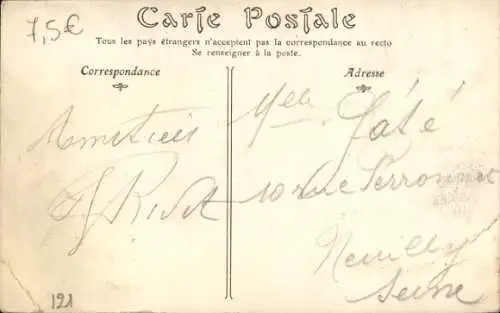 7,5€
Carte Postale
Tous les pays étrangers n'acceptent pas la correspondance au recto
Se renseigner à la poste.
Correspondance
Adresse
Amitiés
Melle
10 rue Perronnet
Neuilly
Seine
121